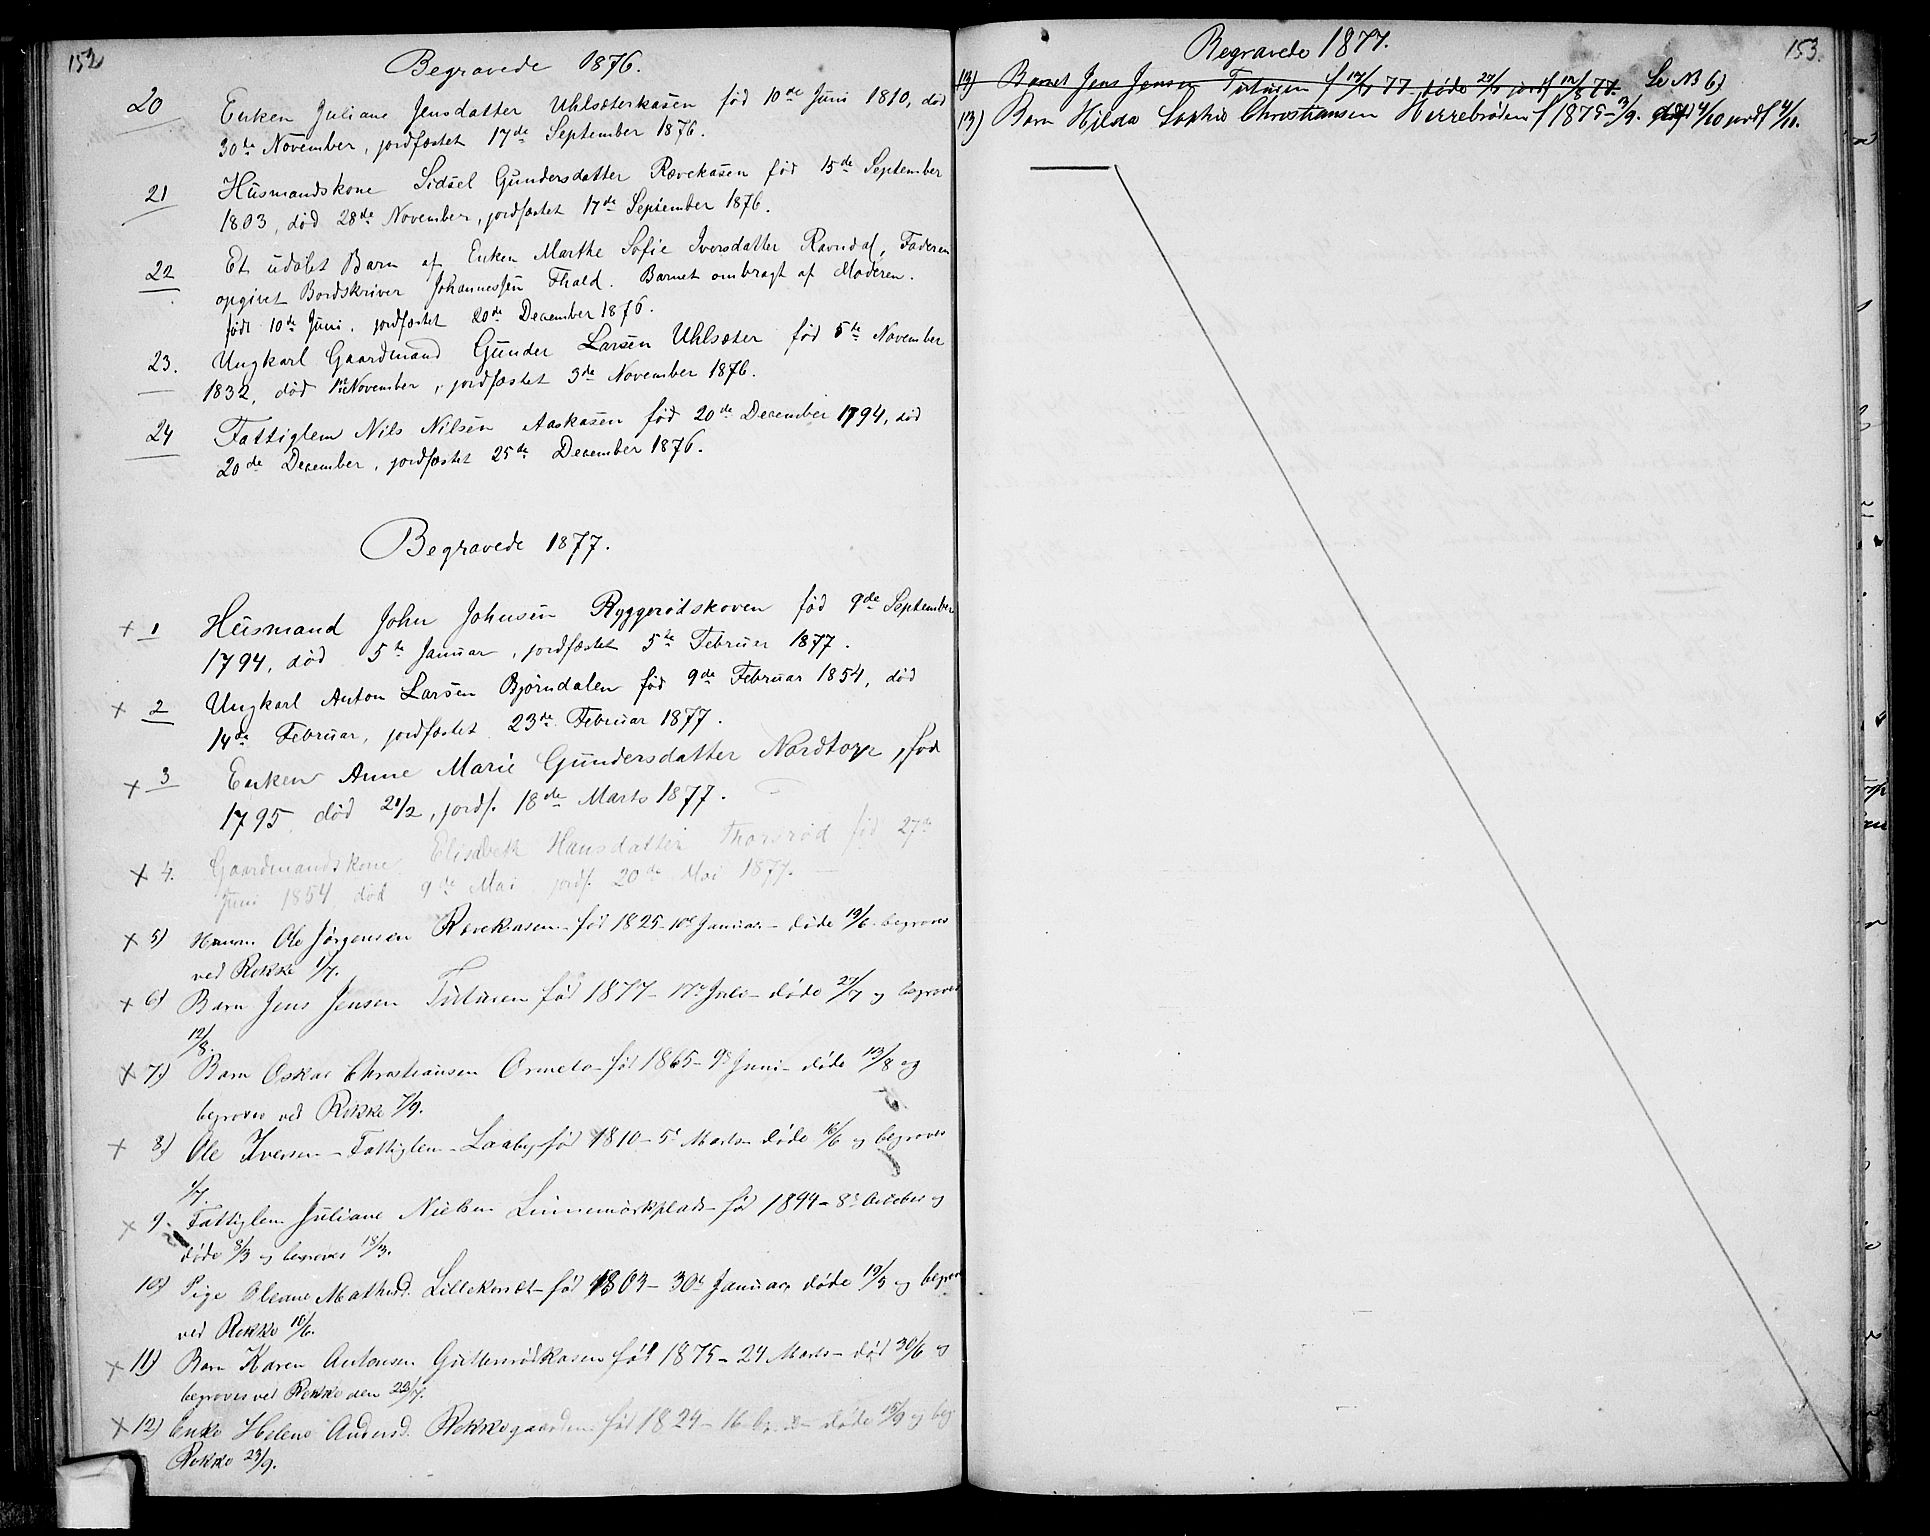 152
Begravede 1876.
20 Enken Juliane Jensdatter Uhlsæterkasen fød 10de Juni 1810, død
30te November, jordfæstet 17de September 1876.
21 Husmandskone Sidsel Gundersdatter Rævekasen fød 15de September
1803, død 28de November, jordfæstet 17de September 1876.
22 Et udølet Barn af Enken Marthe Sofie Iversdatter Ravndal, Faderen
opgivet Bordskriver Johannessen Fhald. Barnet ombragt af Moderen.
født 10de Juni. jordfæstet 20de December 1876.
23. Ungkarl Gaardmand Gunder Larsen Uhlsæter fød 5te November
1832, død 1ste November, jordfæstet 3de November 1876.
24 Fattiglem Nils Nilsen Aaskasen fød 20de December 1794, død
20de December, jordfæstet 25de December 1876.
Begravede 1877.
+ 1 Husmand John Johnsen Ryggerødskoven fød 9de September
1794, død 5te Januar, jordfæstet 5te Februer 1877.
+ 2 Ungkarl Anton Larsen Bjørndalen fød 9de Februar 1854, død
14de Februar, jordfæstet 23de Februar 1877.
+ 3 Enken Anne Marie Gundersdatter Nordtorp, fød
1795, død 21/2, jordf. 18de Marts 1877.
+ 4. Gaardmandskone Elisabeth Hansdatter Thorsrød fød 27de
Juni 1854, død 9de Mai, jordf. 20de Mai 1877.
+ 5) Ole Jørgensen Rævekasen - fød 1825 - 10d Januar - døde 13/6 begraves
ved Rokke 1/7.
+ 6) Barn Jens Jensen fød 1877 - 17d Juli - døde 27/7 og begraves
12/8.
+ 7) Barn Oskar Christiansen Ormelo - fød 1865 - 9d Juni - døde 13/8 og
begraves ved Rokke 7/9.
+ 8) Ole Iversen - Fattiglem - Laaby fød 1810 - 5d Marts - døde 16/6 og begraves
1/7.
+ 9. Fattiglem Juliane Nielsen Linnemörkplads - fød 1844 - 8d October og
døde 8/3 og begraves 18/3.
10) Pige Oleane Mathisd. - fød 1803 - 30d Januar, døde 19/5 og begraves
ved Rokke 10/6.
+ 11) Barn Karen Antonsen Guttersrødkasen fød 1875 - 24 Marts - død 30/6 og
begraves ved Rokke den 22/7.
+ 12) Enke Helene Andersd. Rokkegaarden fød 1824 - 16 - døde 15/9 og beg
Rokke 23/9.
153.
Begravede 1877.
13) Barnet Jens Jensen f 17/7 77 døde 27/7 jordf 12/8 77. Se N3 6)
13) Barn Hilda Sophie Christiansen Herrebrøden f 1875 - 3/9. død 4/10 jordf 4/11.